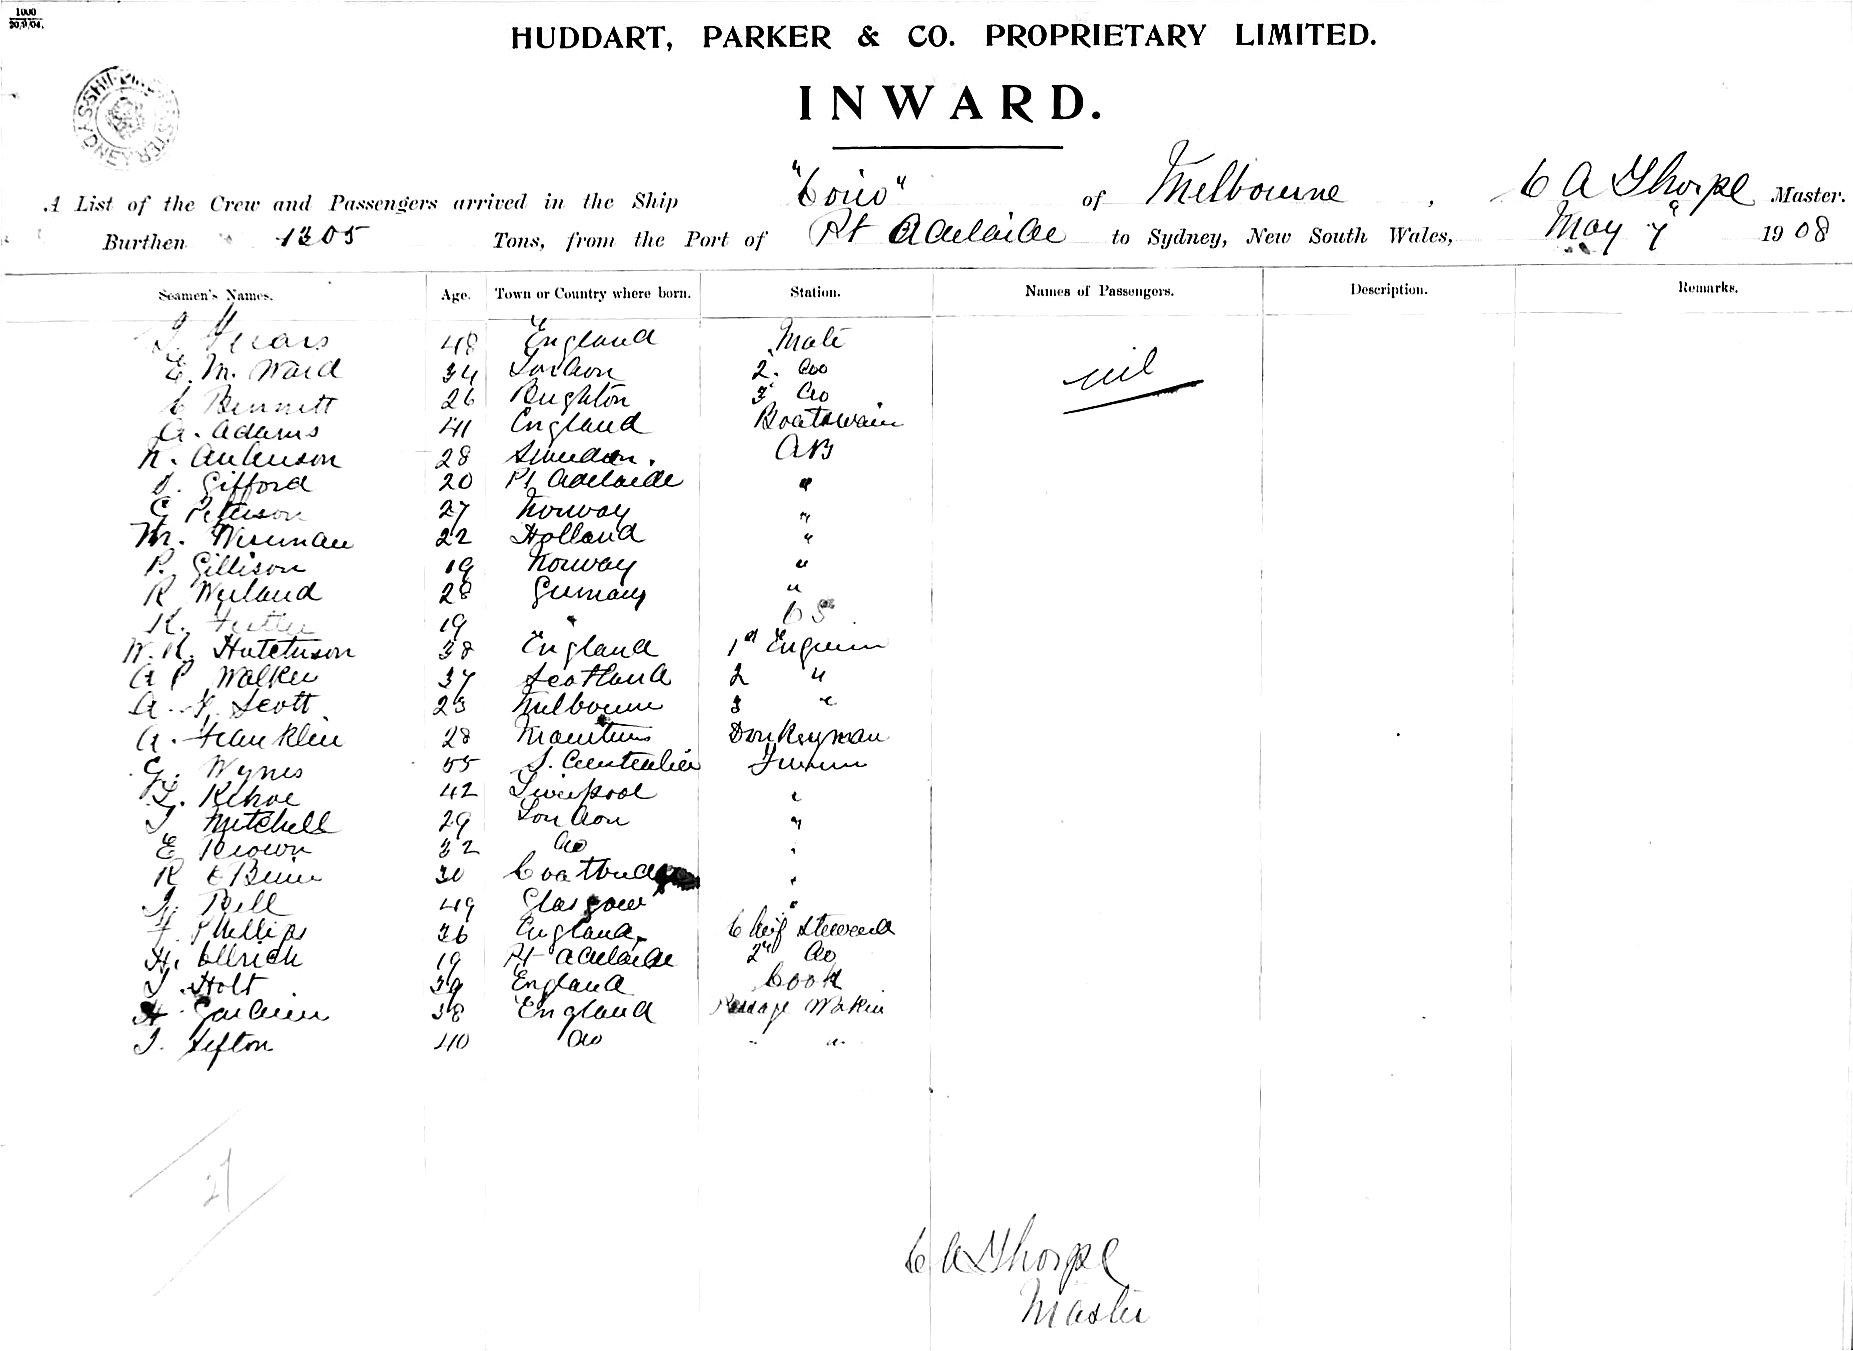 1000
20/9/04.
HUDDART, PARKER & CO. PROPRIETARY LIMITED.
INWARD.
A List of the Crew and Passengers arrived in the Ship "Corio" of Melbourne, C A Thorpe Master.
Burthen 1305 Tons, from the Port of Pt Adelaide to Sydney, New South Wales, May 7 1908
Seamen's Names. Age. Town or Country where born. Station. Names of Passengers. Description. Remarks.
48 England Mate
E. M. Ward 34 London 2. do nil
C Bennett 26 Brighton 3 do
A. Adams 41 England Boatswain
N. Anderson 28 Sweden. AB
Gifford 20 Pt Adelaide "
C Peterson 27 Norway "
M. 22 Holland "
P. Gillison 19 Norway "
R Weiland 28 Germany "
K. 19 " OS
W. R. Hutchison 38 England 1st Engineer
A P Walker 37 Scotland 2 "
A. Scott 23 Melbourne 3 "
A. Franklin 28 Mauritius Donkeyman
G. Wynes 55 S. Australia Fireman
Kehoe 42 Liverpool "
T Mitchell 29 London "
E Brown 32 do "
R 30 Coatbridge "
Bell 49 Glasgow "
F. Phillips 36 England, Chief Steward
H. Ullrich 19 Pt Adelaide 2nd do
T Holt 39 England Cook
H Gardiner 38 England Passage Workin
T. Sefton 40 do " "
27
C A Thorpe
Master